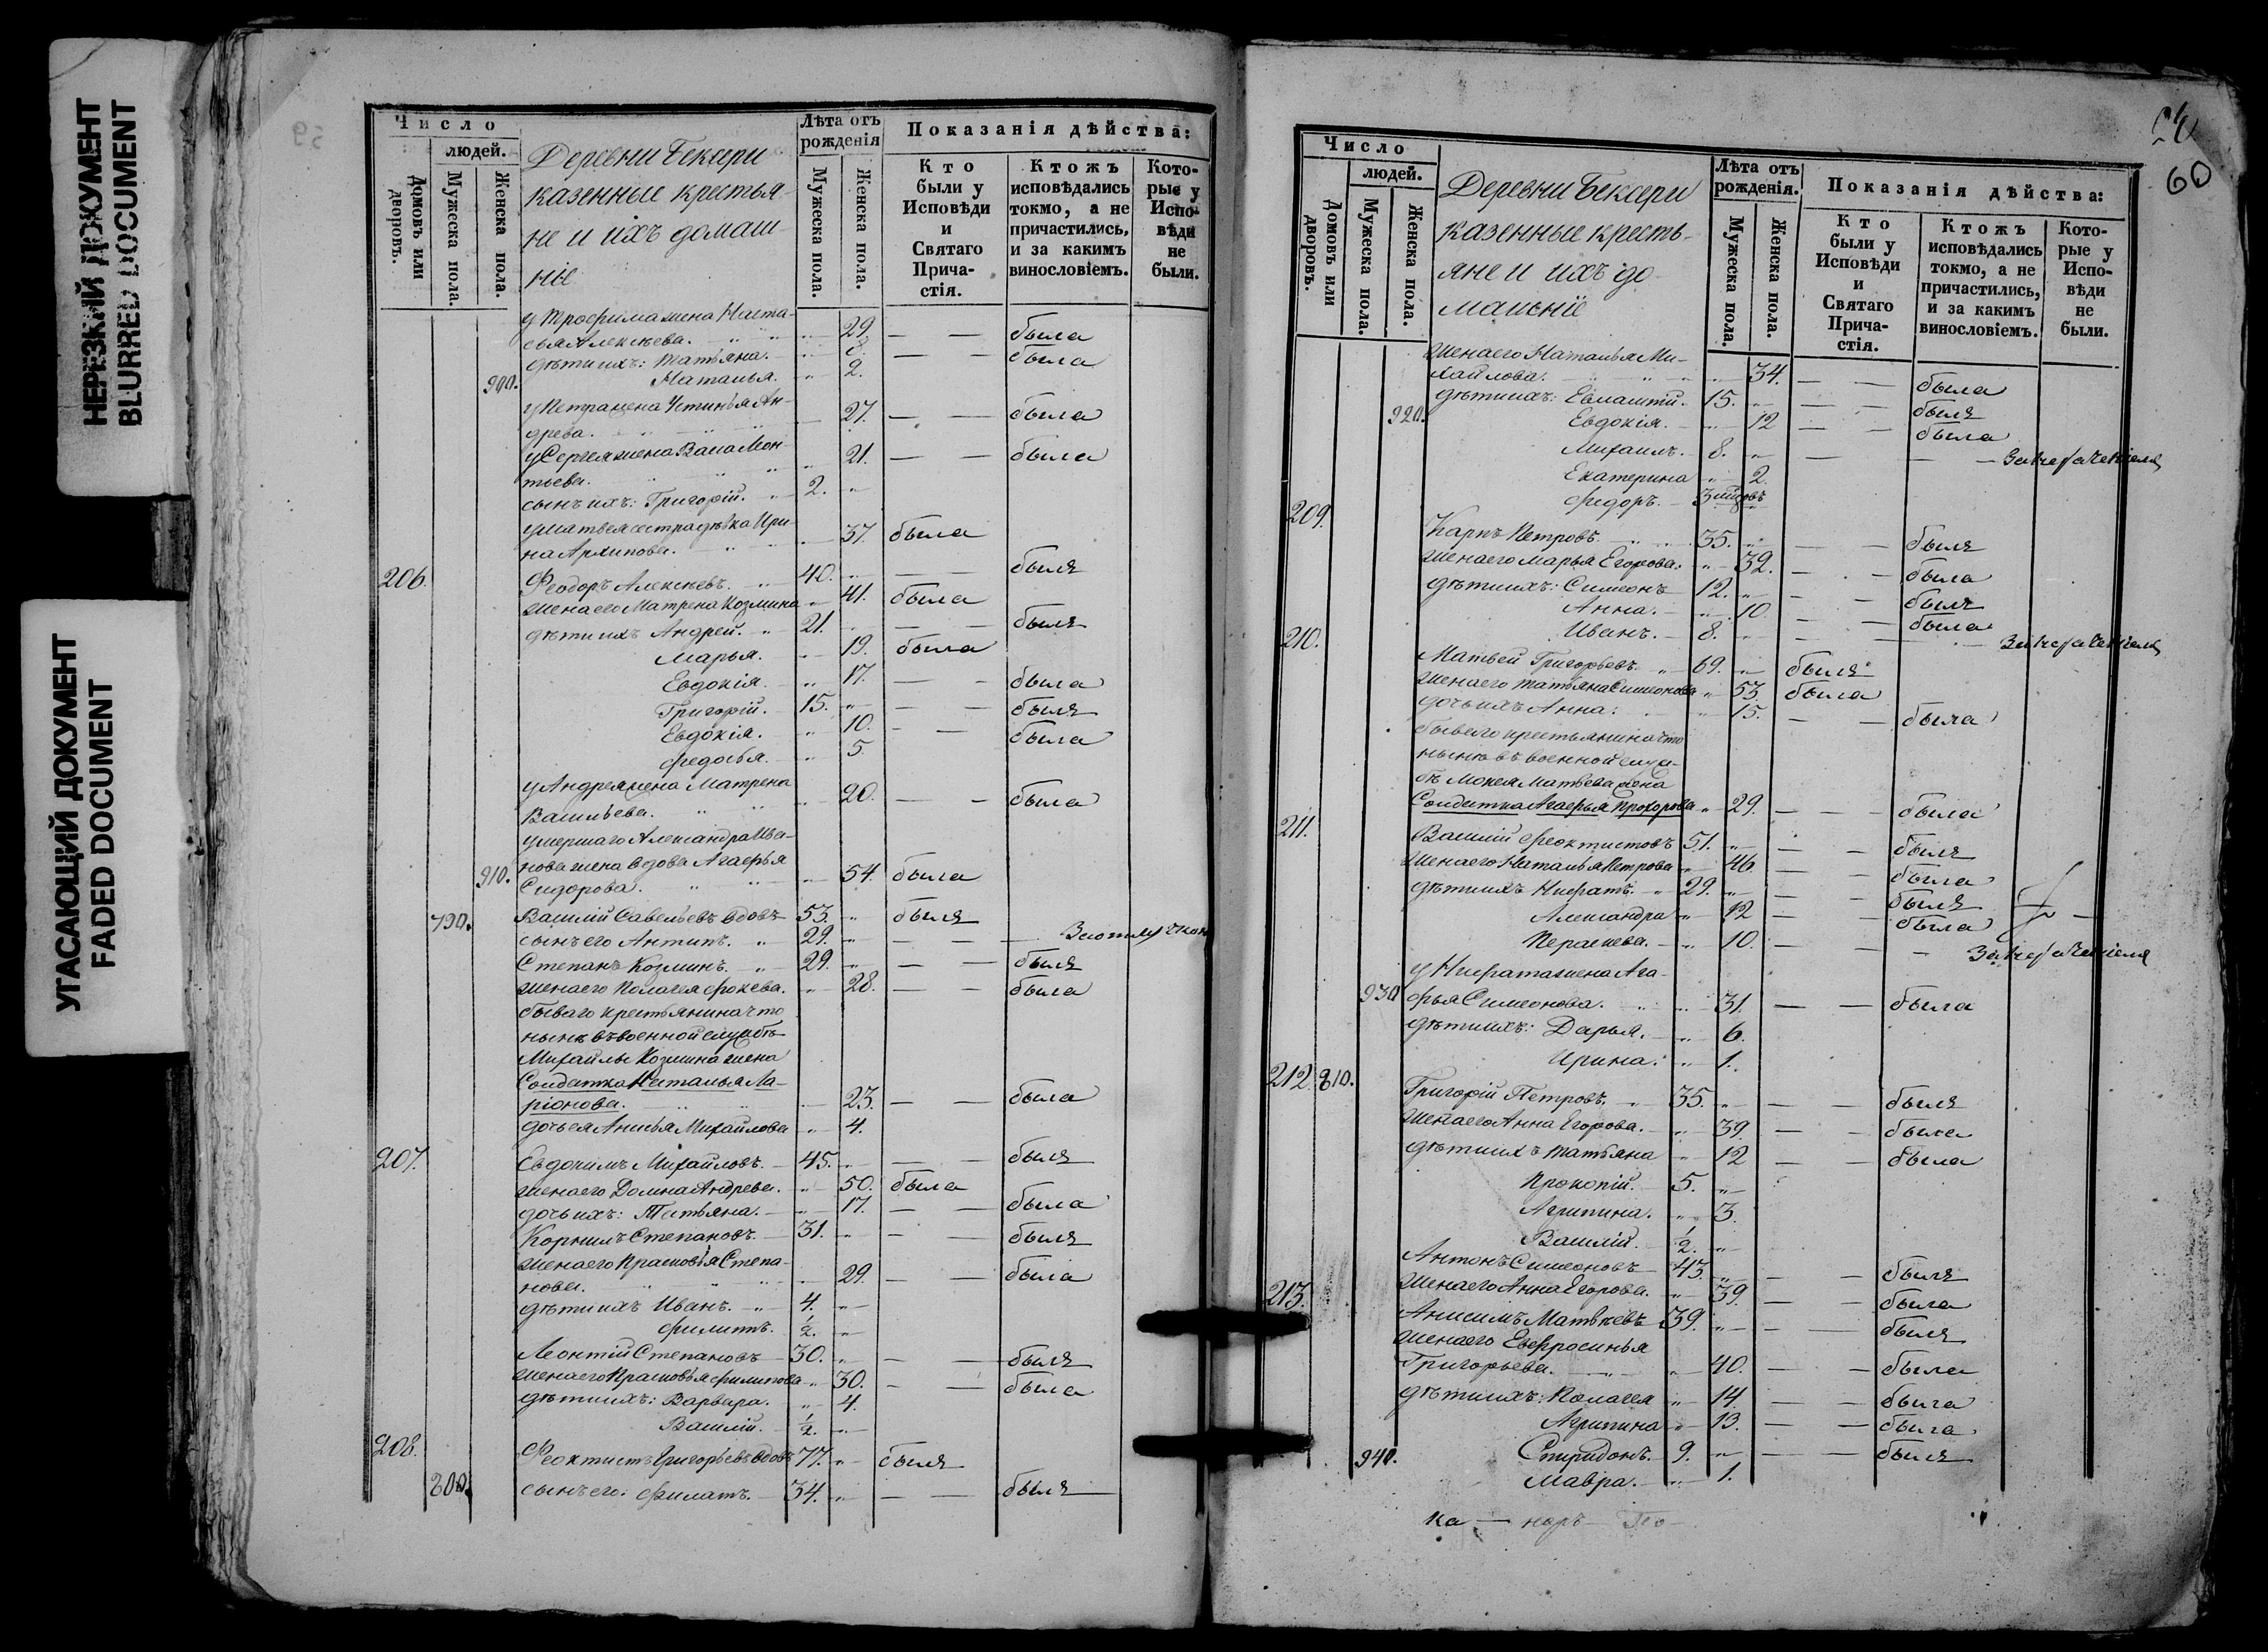 НЕРЕЗКИЙ ДОКУМЕНТ
BLURRED DOCUMENT
УГАСАЮЩИЙ ДОКУМЕНТ
FADED DOCUMENT
Число
людей.
Домовъ или дворовъ.
Мужеска пола.
Женска пола.
Деревни Бексери
казенные крестья-
не и ихъ домаш-
ніе
Лѣта отъ рожденія
Мужеска пола.
Женска пола.
Показанія дѣйства:
Кто были у Исповѣди и Святаго Прича-стія.
Ктожъ исповѣдались токмо, а не причастились, и за какимъ винословіемъ.
Кото-рые у Испо-вѣди не были.
у Трофима жена Наста-
сья Алексѣева. 29. была
дѣти ихъ: Татьяна. 8. была
900. Наталья. 2.
у Петра жена Устинья Ан-
древа. 27. была
у Сергея жена Васса Леон-
тьева. 21. была
сынъ ихъ: Григорій. 2.
у Матвея сестра дѣвка Ири-
на Архипова. 37. была
206. Феодоръ Алексѣевъ. 40. былъ
жена его Матрена Козмина 41. была
дѣти ихъ Андрей. 21. былъ
Марья. 19. была
Евдокія. 17. была
Григорій. 15. былъ
Евдокія. 10. была
Федосья. 5.
у Андрея жена Матрена
Васильева. 20. была
умершаго Александра Ива-
нова жена вдова Агафья
910. Сидорова. 54. была
790. Василій Савельевъ вдовъ 53. былъ
сынъ его Антипъ. 29. За отлучкою
Степанъ Козминъ. 29. былъ
жена его Пелагея Фокева. 28. была
бываго крестьянина что
нынѣ въ военной службѣ
Михайлы Козмина жена
Солдатка Наталья Ла-
ріонова. 23. была
дочь ея Анисья Михайлова 4.
207. Евдокимъ Михайловъ. 45. былъ
жена его Домна Андрева. 50. была
дочь ихъ: Татьяна. 17. была
Корнилъ Степановъ. 31. былъ
жена его Прасковья Степа-
нова. 29. была
дѣти ихъ Иванъ. 4.
Филипъ. 1/2.
Леонтій Степановъ 30. былъ
жена его Прасковья Филипова 30. была
дѣти ихъ: Варвара. 4.
Василій. 1/2.
208. Феоктистъ Григорьевъ вдовъ 77. былъ
800. сынъ его: Филатъ. 34. былъ
60
Число
людей.
Домовъ или дворовъ.
Мужеска пола.
Женска пола.
Деревни Бексери
казенные кресть-
яне и ихъ до
машніе
Лѣта отъ рожденія.
Мужеска пола.
Женска пола.
Показанія дѣйства:
Кто были у Исповѣди и Святаго Прича-стія.
Ктожъ исповѣдались токмо, а не причастились, и за какимъ винословіемъ.
Кото-рые у Испо-вѣди не были.
жена его Наталья Ми-
хайлова. 34. была
дѣти ихъ: Евлампій. 15. былъ
920. Евдокія. 12 была
Михаилъ. 8.
Екатерина 2.
Федоръ. 3
209. Карпъ Петровъ. 35. былъ
жена его Марья Егорова. 32. была
дѣти ихъ: Симеонъ 12. былъ
Анна. 10 была
Иванъ. 8.
210. Матвей Григорьевъ. 69. былъ
жена его Татьяна Симеонова 53 была
дочь ихъ Анна: 15. была
бываго крестьянина что
нынѣ въ военной служ-
бѣ Мокея Матвева жена
Солдатка Агафья Прохорова 29. была
211. Василій Феоктистовъ 51. былъ
жена его Наталья Петрова 46. была
дѣти ихъ Нифатъ. 29. былъ
Александра 12 была
Пераскева. 10.
у Нифата жена Ага-
930 фья Симеонова. 31. была
дѣти ихъ: Дарья. 6.
Ирина: 1.
212. 810. Григорій Петровъ. 35. былъ
жена его Анна Егорова. 39. была
дѣти ихъ Татьяна 12 была
Прокопій. 5.
Агрипина. 3.
Василій. 1/2.
Антонъ Симеоновъ 43. былъ
жена его Анна Егорова. 39. была
213. Анисимъ Матвѣевъ 39. былъ
жена его Евфросинья
Григорьева. 40. была
дѣти ихъ: Пелагея 14. была
Агрипина 13. была
940. Спиридонъ. 9. былъ
Мавра. 1.